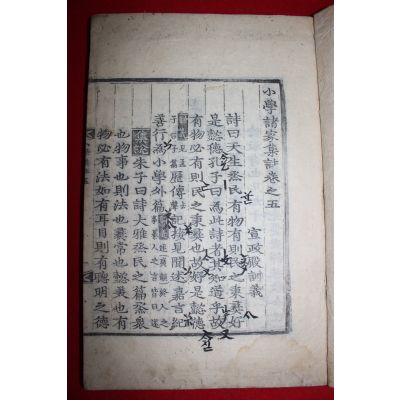 小學諸家集註卷之五
宣政殿訓義
詩曰天生烝民有物有則民之秉彝好
是懿德孔子曰為此詩者其知道乎故
有物必有則民之秉彝也故好是懿德
歷傳記接見聞述嘉言紀
善行為小學外篇
朱子曰詩大雅烝民之篇烝衆
也物事也則法也彝常也懿美也有
物必有法如有耳目則有聰明之德